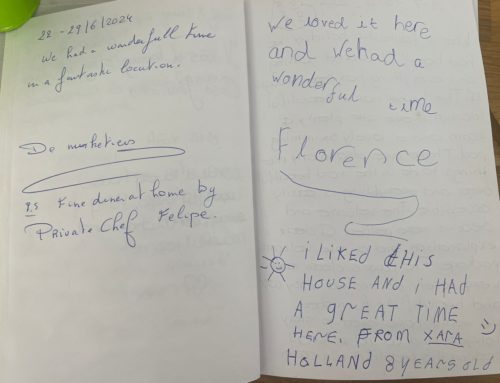 22 - 29/6/2024
We had a wonderfull time
in a fantastic location.
De
P.S Fine diner at home by
Private Chef Felipe.
We loved it here
and we had a
wonderful time
Florence
i LIKED tHIS
HOUSE AND i HAD
A gREAT TIME
HERE. FROM XARA
HOLLAND 8 YEARS OLD